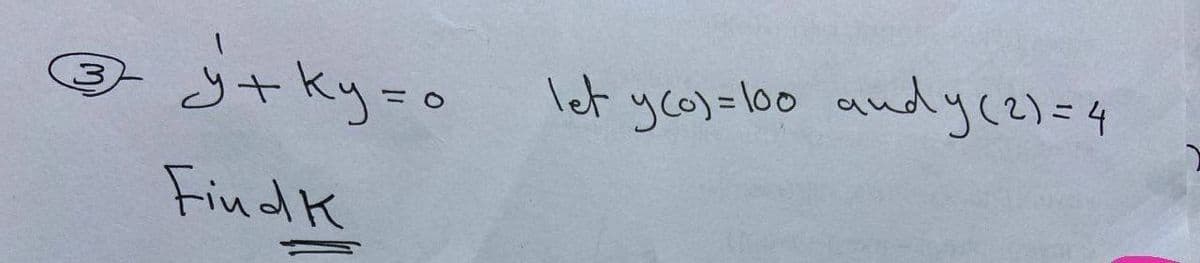 3- y' + ky = 0 let y(0) = 100 and y(2) = 4
Find K